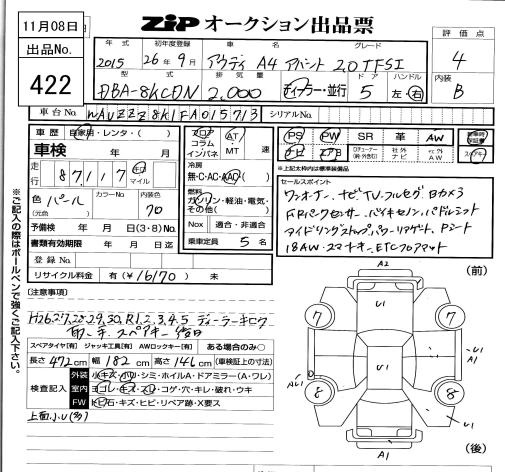 11月08日
ZiP オークション出品票
評価点
出品No.
422
年式 初年度登録 車名 グレード
2015 26年9月 アウディ A4 アバント 2.0TFSI
4
型式 排気量 ドア ハンドル
DBA-8KCDN 2,000 ディーラー・並行 5 左・右
内装
B
車台No. WAUZZZ8K1FA015713 シリアルNo.
車歴 自家用・レンタ・( )
車検 年 月
走行 87,117 km マイル
色 パール
(元色 )
カラーNo
内装色
70
予備検 年 月 日(3・8)No.
書類有効期限 年 月 日迄
登録No.
リサイクル料金 有(¥16170) 未
フロア
コラム
インパネ
AT
MT
速
冷房
無・C・AC・AAC
燃料
ガソリン・軽油・電気・
その他( )
Nox 適合・非適合
乗車定員 5 名
PS PW SR 革 AW
ナビ エアB
社外ナビ
社外AW
スペアキー
*上記太枠内は標準装備品
セールスポイント
ワンオーナー、ナビ、TVフルセグ Bカメラ
FRパークセンサー、バイキセノン、パドルシフト
アイドリングストップ、パワーリアゲート、Pシート
18AW、スマートキー、ETC、フロアマット
※ご記入の際はボールペンで強くご記入下さい。
(注意事項)
H26.27.28.29.30.R1.2.3.4.5 ディーラーキロク
スペアタイヤ[有] ジャッキ工具[有] AWロックキー[有] ある場合のみ○
長さ 472cm 幅 182cm 高さ 146cm (車検証上の寸法)
検査記入
外装 小キズ・小U・シミ・ホイルA・ドアミラー(A・ワレ)
室内 ヨゴレ・キズ・スレ・コゲ・穴・キレ・破れ・ウキ
FW トビ石・キズ・ヒビ・リペア跡・X要ス
上面小U(多)
(前)
A2
A1
U1
7
7
U1
U1
A1
AU1
U1
8
8
U1
U1
A1
(後)